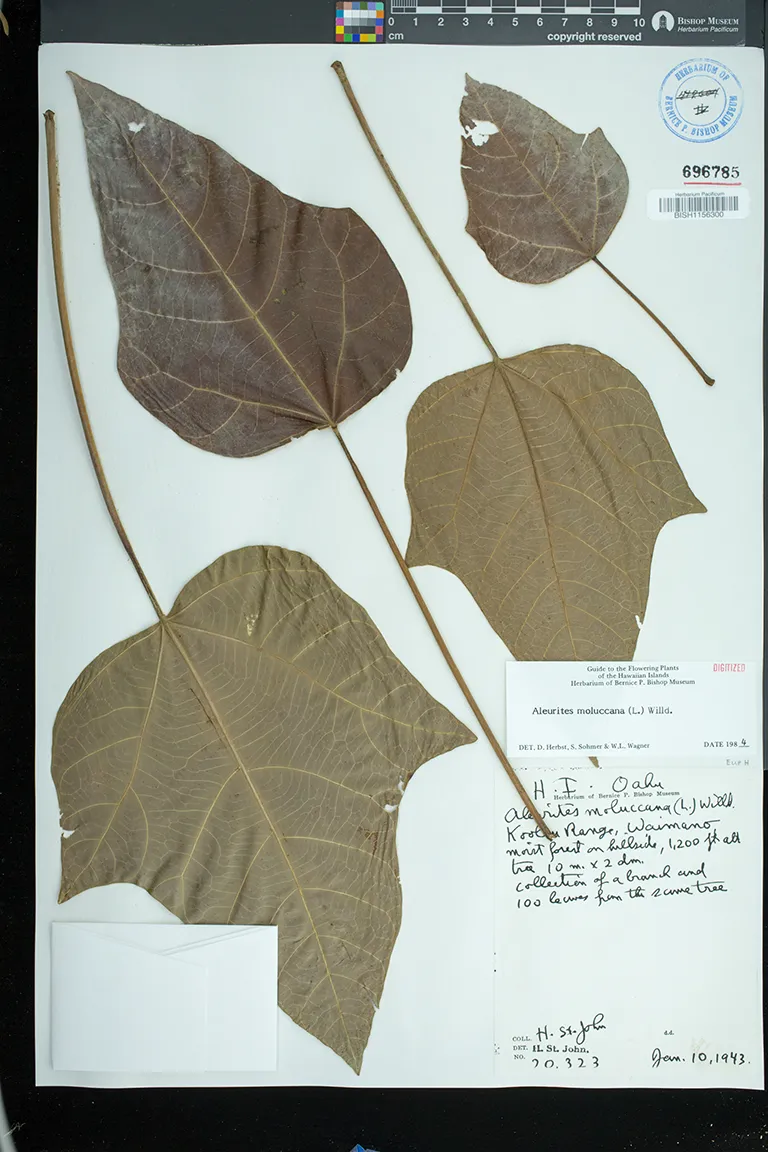 0 1 2 3 4 5 6 7 8 9 10
cm
copyright reserved
BISHOP MUSEUM
Herbarium Pacificum
HERBARIUM OF
BERNICE P. BISHOP MUSEUM
696785
Herbarium Pacificum
BISH1156300
Guide to the Flowering Plants
of the Hawaiian Islands
Herbarium of Bernice P. Bishop Museum
DIGITIZED
Aleurites moluccana (L.) Willd.
DET. D. Herbst, S. Sohmer & W.L. Wagner
DATE 1984
H. I. Oahu
Herbarium of Bernice P. Bishop Museum
Aleurites moluccana (L.) Willd.
Koolau Range, Waimano
moist forest on hillside, 1,200 ft alt
tree 10 m. x 2 dm.
collection of a branch and
100 leaves from the same tree
COLL. H. St. John
d.d.
DET. H. St. John,
NO. 20,323
Jan. 10, 1943.